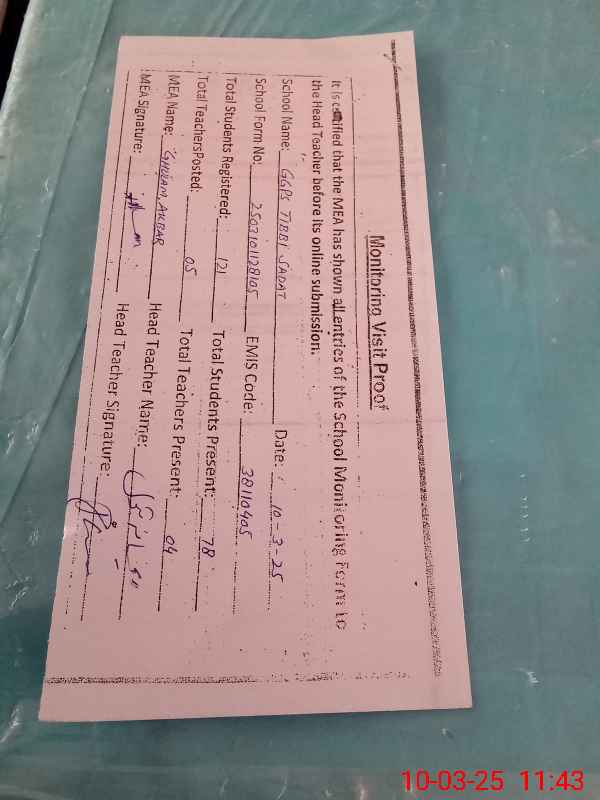 Monitoring Visit Proof
It is certified that the MEA has shown all entries of the School Monitoring Form to
the Head Teacher before its online submission.
School Name: GGPS TIBBI SADAT Date: 10-3-25
School Form No: 2503101128105 EMIS Code: 38110405
Total Students Registered: 121 Total Students Present: 78
Total TeachersPosted: 05 Total Teachers Present: 04
MEA Name: GHULAM AKBAR Head Teacher Name:
MEA Signature: Head Teacher Signature:
10-03-25 11:43